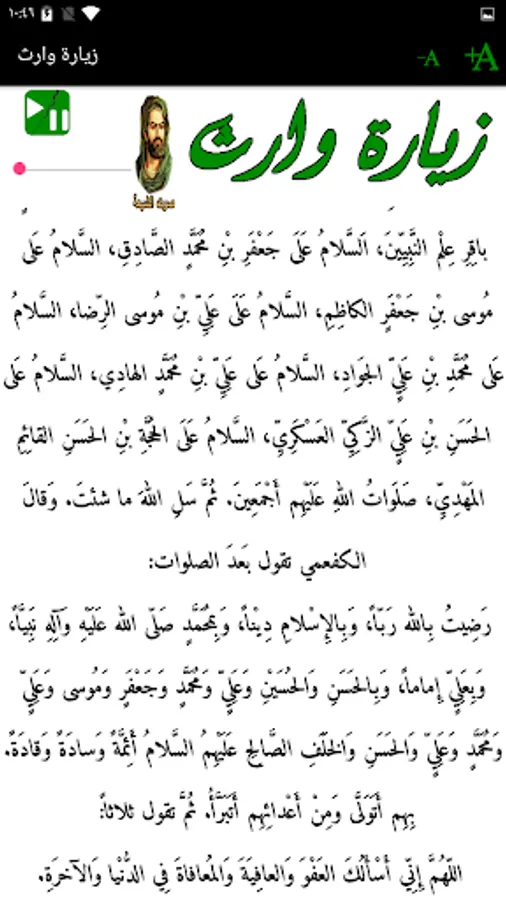 ١٠:٤٦
زيارة وارث
-A
+A
زيارة وارث
باقِرِ عِلْمِ النَّبِيِّينَ، اَلسَّلامُ عَلَى جَعْفَرِ بْنِ مُحَمَّدٍ الصَّادِقِ، السَّلامُ عَلَى
مُوسى بْنِ جَعْفَرٍ الكاظِمِ، السَّلامُ عَلَى عَلِيِّ بْنِ مُوسى الرِّضا، السَّلامُ
عَلَى مُحَمَّدِ بْنِ عَلِيٍّ الجَوَادِ، السَّلامُ عَلَى عَلِيِّ بْنِ مُحَمَّدٍ الهادِي، السَّلامُ عَلَى
الحَسَنِ بْنِ عَلِيٍّ الزَّكِيِّ العَسْكَرِيِّ، السَّلامُ عَلَى الحُجَّةِ بْنِ الحَسَنِ القائِمِ
المَهْدِيِّ، صَلَوَاتُ اللهِ عَلَيْهِم أَجْمَعِينَ. ثُمَّ سَلِ اللهَ ما شئتَ. وَقالَ
الكفعمي تقول بَعَدَ الصلوات:
رَضِيتُ بِالله رَبّاً، وَبِالإِسْلامِ دِيْناً، وَبِمُحَمَّدٍ صَلّى الله عَلَيْهِ وَآلِهِ نَبِيَّاً،
وَبِعَلِيٍّ إِماماً، وَبِالحَسَنِ وَالحُسَيْنِ وَعَلِيٍّ وَمُحَمَّدٍ وَجَعْفَرٍ وَمُوسى وَعَلِيٍّ
وَمُحَمَّدٍ وَعَلِيٍّ وَالحَسَنِ وَالخَلَفِ الصَّالِحِ عَلَيْهِمُ السَّلامُ أَئِمَّةً وَسادَةً وَقادَةً.
بِهِم أَتَوَلَّى وَمِنْ أَعْدائِهِم أَتَبَرَّأُ. ثُمَّ تقول ثلاثاً:
اللّهُمَّ إِنِّي أَسْأَلُكَ العَفْوَ وَالعافِيَةَ وَالمُعافاةَ فِي الدُّنْيا وَالآخرَةِ.